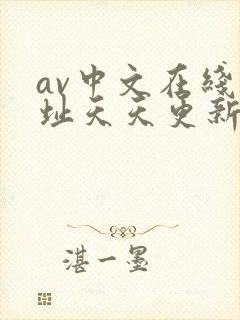 av中文在线
址天天更新
湛一墨